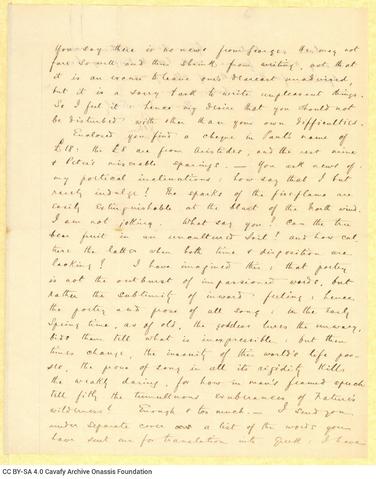 You say there is no news from George. He may not
fare so well and thus shrink from writing, not that
it is an excuse to leave one's dearest unadvised,
but it is a sorry task to write unpleasant things.
So I feel it: hence my desire that you should not
be disturbed with other than your own difficulties.
Enclosed you find a cheque in Paul's name of
£15: the £8 are from Aristides, and the rest mine
& Peter's miserable sparings. — You ask news of
my poetical inclinations: how say that I but
rarely indulge! The sparks of the fireflame are
easily extinguishable at the blast of the North wind.
I am not joking. What say you? Can the tree
bear fruit in an uncultured soil? and how cul-
ture the latter when both time & disposition are
lacking? I have imagined this: that poetry
is not the outburst of impassioned words, but
rather the sublimity of inward feeling; hence
the poetry and prose of all song: in the early
Spring time, as of old, the goddess lures the unwary,
bids them tell what is inexpressible: but then
times change, the insanity of this world's life
the prose of song in all its rigidity kills
the weakly daring, for how in man's framed speech
tell fitly the tumultuous exuberances of Nature's
wilderness! Enough & too much. — I send you
under separate cover a list of the words you
have sent me for translation into Greek: I have
CC BY-SA 4.0 Cavafy Archive Onassis Foundation